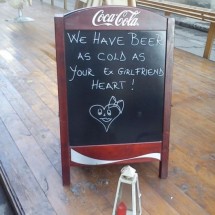 Coca-Cola
WE HAVE BEER
AS COLD AS
YOUR EX GIRLFRIEND
HEART!